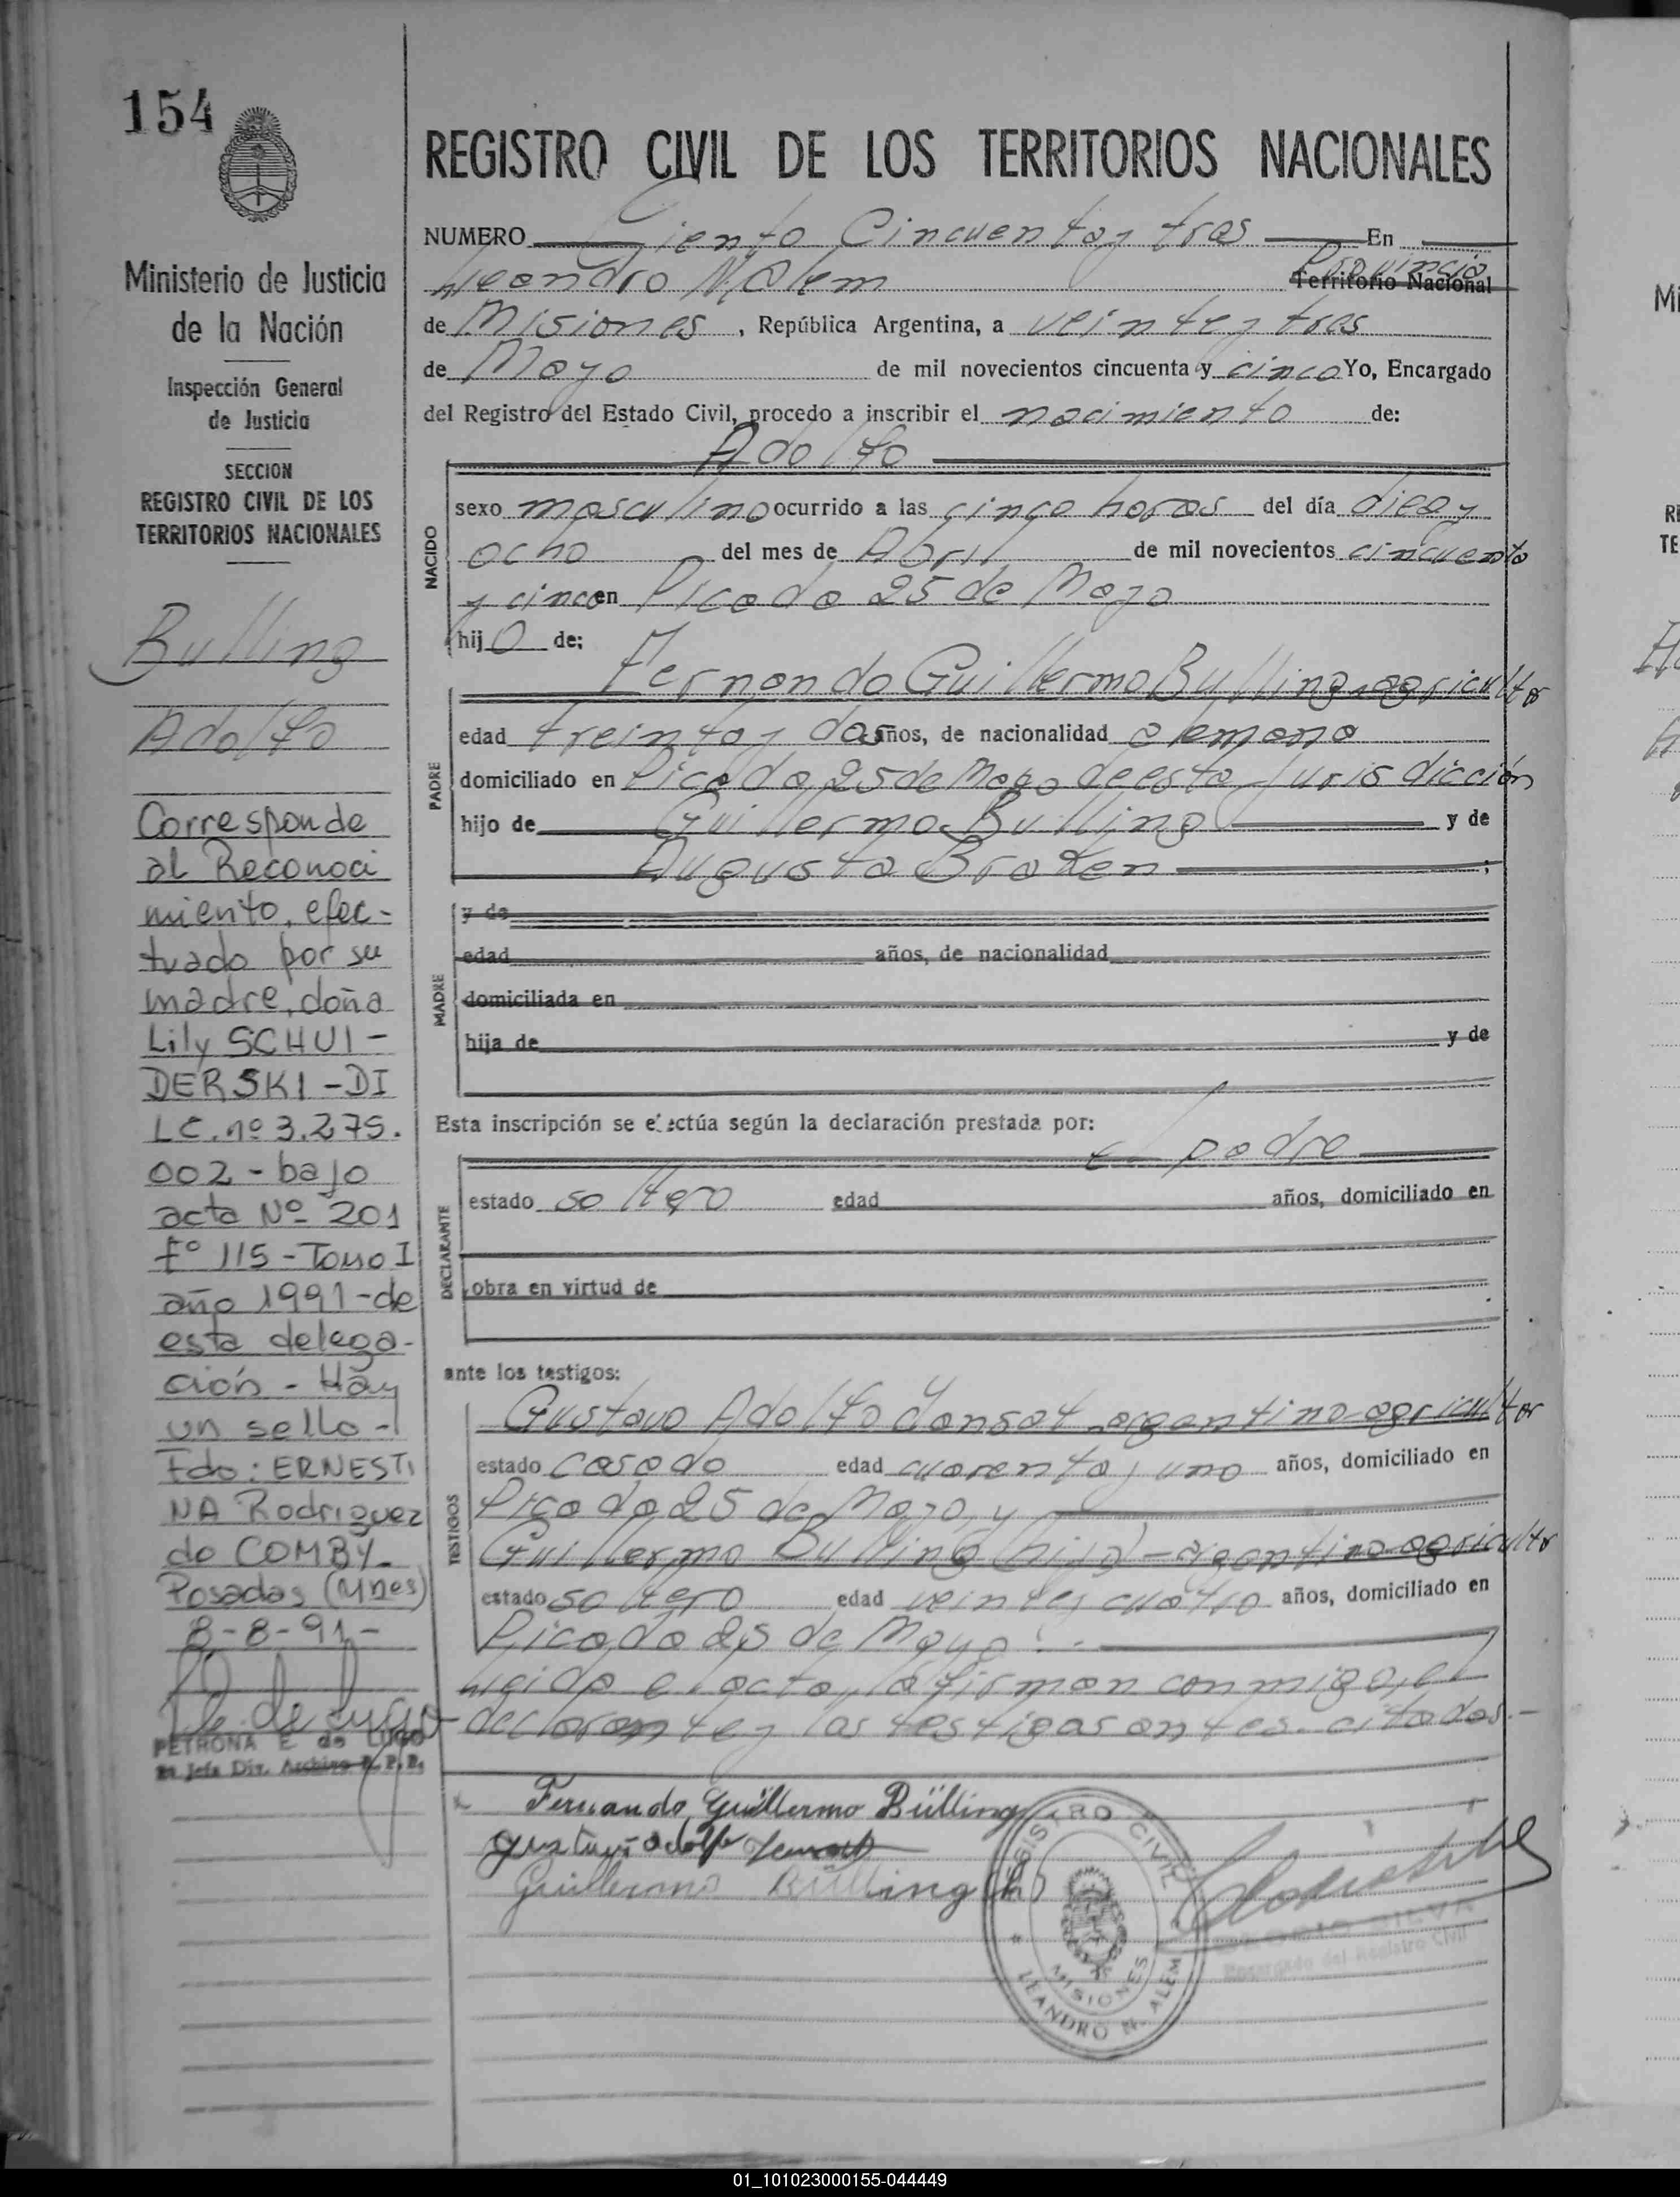 154
Ministerio de Justicia
de la Nación
Inspección General
de Justicia
SECCION
REGISTRO CIVIL DE LOS
TERRITORIOS NACIONALES
Bulling
Adolfo
Corresponde
al Reconoci
miento, efec-
tuado por su
madre, doña
Lily SCHUI-
DERSKI - DI
LC. nº 3.275.
002 - bajo
acta Nº 201
Fº 115 - Tomo I
año 1991 - de
esta delega-
ción - Hay
un sello -
Fdo: ERNESTI
NA Rodriguez
de COMBY-
Posadas (Mnes)
8-8-91-
PETRONA E de LUGO
Jefa Div. Archivo R.P.P.
REGISTRO CIVIL DE LOS TERRITORIOS NACIONALES
NUMERO Ciento Cincuenta y tres En
Leandro N. Alem Provincia Territorio Nacional
de Misiones, República Argentina, a veinte y tres
de Mayo de mil novecientos cincuenta y cinco Yo, Encargado
del Registro del Estado Civil, procedo a inscribir el nacimiento de:
Adolfo
NACIDO
sexo masculino ocurrido a las cinco horas del día diez y
ocho del mes de Abril de mil novecientos cincuenta
y cinco en Picada 25 de Mayo
hijo de:
PADRE
Fernando Guillermo Bulling - agricultor
edad treinta y dos años, de nacionalidad alemana
domiciliado en Picada 25 de Mayo de esta Jurisdicción
hijo de Guillermo Bulling y de
Augusta Braken ;
MADRE
y de
edad años, de nacionalidad
domiciliada en
hija de y de
Esta inscripción se efectúa según la declaración prestada por:
El padre
DECLARANTE
estado soltero edad años, domiciliado en
obra en virtud de
ante los testigos:
TESTIGOS
Gustavo Adolfo Jansat - argentino - agricultor
estado casado edad cuarenta y uno años, domiciliado en
Picada 25 de Mayo, y
Guillermo Bulling (hijo) - argentino - agricultor
estado soltero edad veinte y cuatro años, domiciliado en
Picada 25 de Mayo.
Leida el acta, la firman conmigo, el
declarante y los testigos antes citados.-
Fernando Guillermo Bülling
Gustavo Adolfo
Guillermo Bülling (h)
REGISTRO CIVIL
MISIONES
LEANDRO N. ALEM
SILVA
Encargado del Registro Civil
01_101023000155-044449